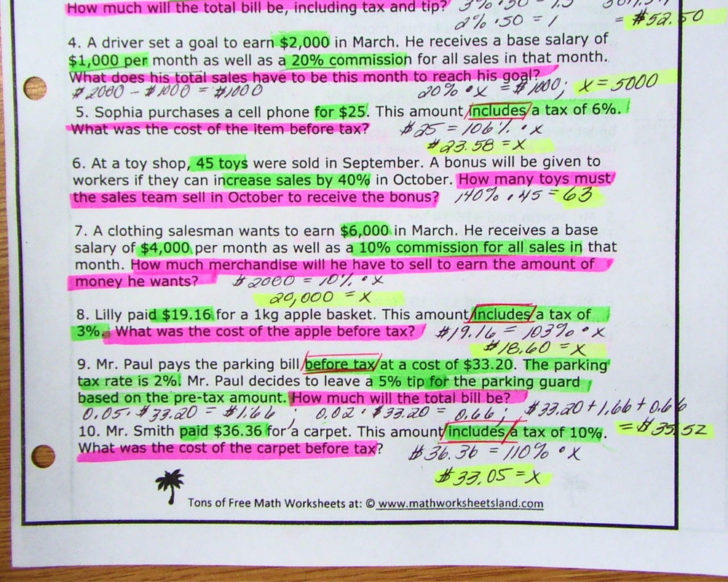 How much will the total bill be, including tax and tip?
2% · 50 = 1
= $52.50
4. A driver set a goal to earn $2,000 in March. He receives a base salary of
$1,000 per month as well as a 20% commission for all sales in that month.
What does his total sales have to be this month to reach his goal?
$2000 - $1000 = $1000 20% · x = $1000; x = 5000
5. Sophia purchases a cell phone for $25. This amount includes a tax of 6%.
What was the cost of the item before tax? $25 = 106% · x
$23.58 = x
6. At a toy shop, 45 toys were sold in September. A bonus will be given to
workers if they can increase sales by 40% in October. How many toys must
the sales team sell in October to receive the bonus? 140% · 45 = 63
7. A clothing salesman wants to earn $6,000 in March. He receives a base
salary of $4,000 per month as well as a 10% commission for all sales in that
month. How much merchandise will he have to sell to earn the amount of
money he wants? $2000 = 10% · x
20,000 = x
8. Lilly paid $19.16 for a 1kg apple basket. This amount includes a tax of
3%. What was the cost of the apple before tax? $19.16 = 103% · x
$18.60 = x
9. Mr. Paul pays the parking bill before tax at a cost of $33.20. The parking
tax rate is 2%. Mr. Paul decides to leave a 5% tip for the parking guard
based on the pre-tax amount. How much will the total bill be?
0.05 · $33.20 = $1.66 ; 0.02 · $33.20 = 0.66 ; $33.20 + 1.66 + 0.66
10. Mr. Smith paid $36.36 for a carpet. This amount includes a tax of 10%. = $35.52
What was the cost of the carpet before tax? $36.36 = 110% · x
$33.05 = x
Tons of Free Math Worksheets at: © www.mathworksheetsland.com